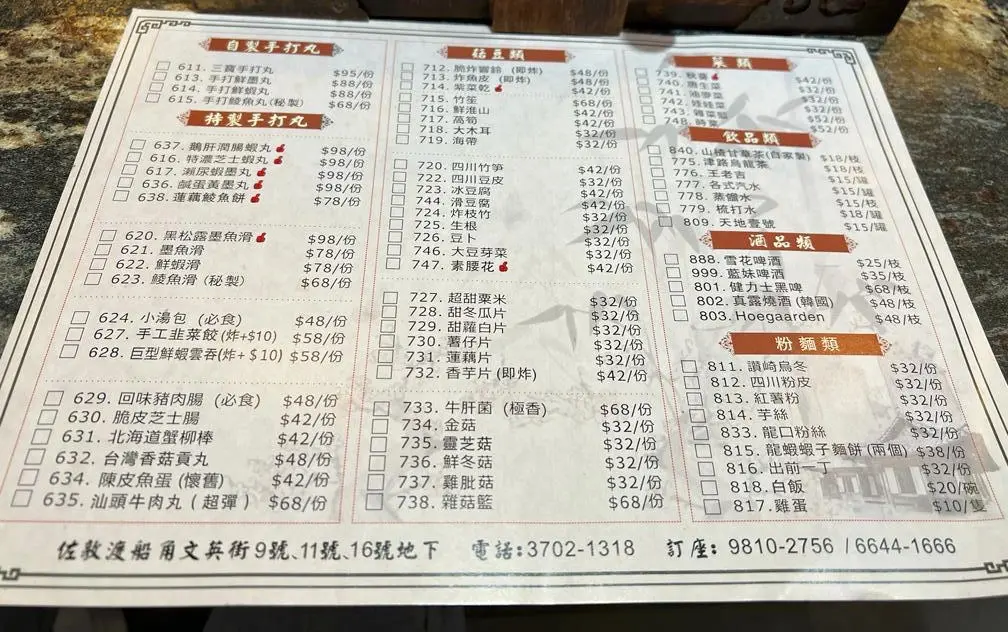 自製手打丸
611. 三寶手打丸 $95/份
613. 手打鮮墨丸 $88/份
614. 手打鮮蝦丸 $88/份
615. 手打鯪魚丸(秘製) $68/份
特製手打丸
637. 鵝肝潤腸蝦丸 $98/份
616. 特濃芝士蝦丸 $98/份
617. 瀨尿蝦墨丸 $98/份
636. 鹹蛋黃墨丸 $98/份
638. 蓮藕鯪魚餅 $78/份
620. 黑松露墨魚滑 $98/份
621. 墨魚滑 $78/份
622. 鮮蝦滑 $78/份
623. 鯪魚滑 (秘製) $68/份
624. 小湯包 (必食) $48/份
627. 手工韭菜餃(炸+$10) $58/份
628. 巨型鮮蝦雲吞(炸+$10) $58/份
629. 回味豬肉腸 (必食) $48/份
630. 脆皮芝士腸 $42/份
631. 北海道蟹柳棒 $42/份
632. 台灣香菇貢丸 $48/份
634. 陳皮魚蛋 (懷舊) $42/份
635. 汕頭牛肉丸 (超彈) $68/份
菇豆類
712. 脆炸響鈴 (即炸) $48/份
713. 炸魚皮 (即炸) $48/份
714. 紫菜乾 $42/份
715. 竹笙 $68/份
716. 鮮淮山 $42/份
717. 高筍 $42/份
718. 大木耳 $32/份
719. 海帶 $32/份
720. 四川竹笋 $42/份
722. 四川豆皮 $32/份
723. 冰豆腐 $42/份
744. 滑豆腐 $42/份
724. 炸枝竹 $32/份
725. 生根 $32/份
726. 豆卜 $32/份
746. 大豆芽菜 $32/份
747. 素腰花 $42/份
727. 超甜粟米 $32/份
728. 甜冬瓜片 $32/份
729. 甜蘿白片 $32/份
730. 薯仔片 $32/份
731. 蓮藕片 $32/份
732. 香芋片(即炸) $42/份
733. 牛肝菌 (極香) $68/份
734. 金菇 $32/份
735. 靈芝菇 $32/份
736. 鮮冬菇 $32/份
737. 雞肶菇 $32/份
738. 雜菇籃 $68/份
菜類
739. 秋葵 $42/份
740. 唐生菜 $32/份
741. 油麥菜 $32/份
742. 娃娃菜 $32/份
743. 雜菜籃 $52/份
748. 時菜 $52/份
飲品類
840. 山楂甘草茶(自家製) $18/枝
775. 津路烏龍茶 $18/枝
776. 王老吉 $15/罐
777. 各式汽水 $15/罐
778. 蒸餾水 $15/枝
779. 梳打水 $18/罐
809. 天地壹號 $15/罐
酒品類
888. 雪花啤酒 $25/枝
999. 藍妹啤酒 $35/枝
801. 健力士黑啤 $68/枝
802. 真露燒酒 (韓國) $48/枝
803. Hoegaarden $48/枝
粉麵類
811. 讚崎烏冬 $32/份
812. 四川粉皮 $32/份
813. 紅薯粉 $32/份
814. 芋絲 $32/份
833. 龍口粉絲 $32/份
815. 龍蝦蝦子麵餅(兩個) $38/份
816. 出前一丁 $32/份
818. 白飯 $20/碗
817. 雞蛋 $10/隻
佐敦渡船角文英街9號、11號、16號地下 電話:3702-1318 訂座: 9810-2756 /6644-1666